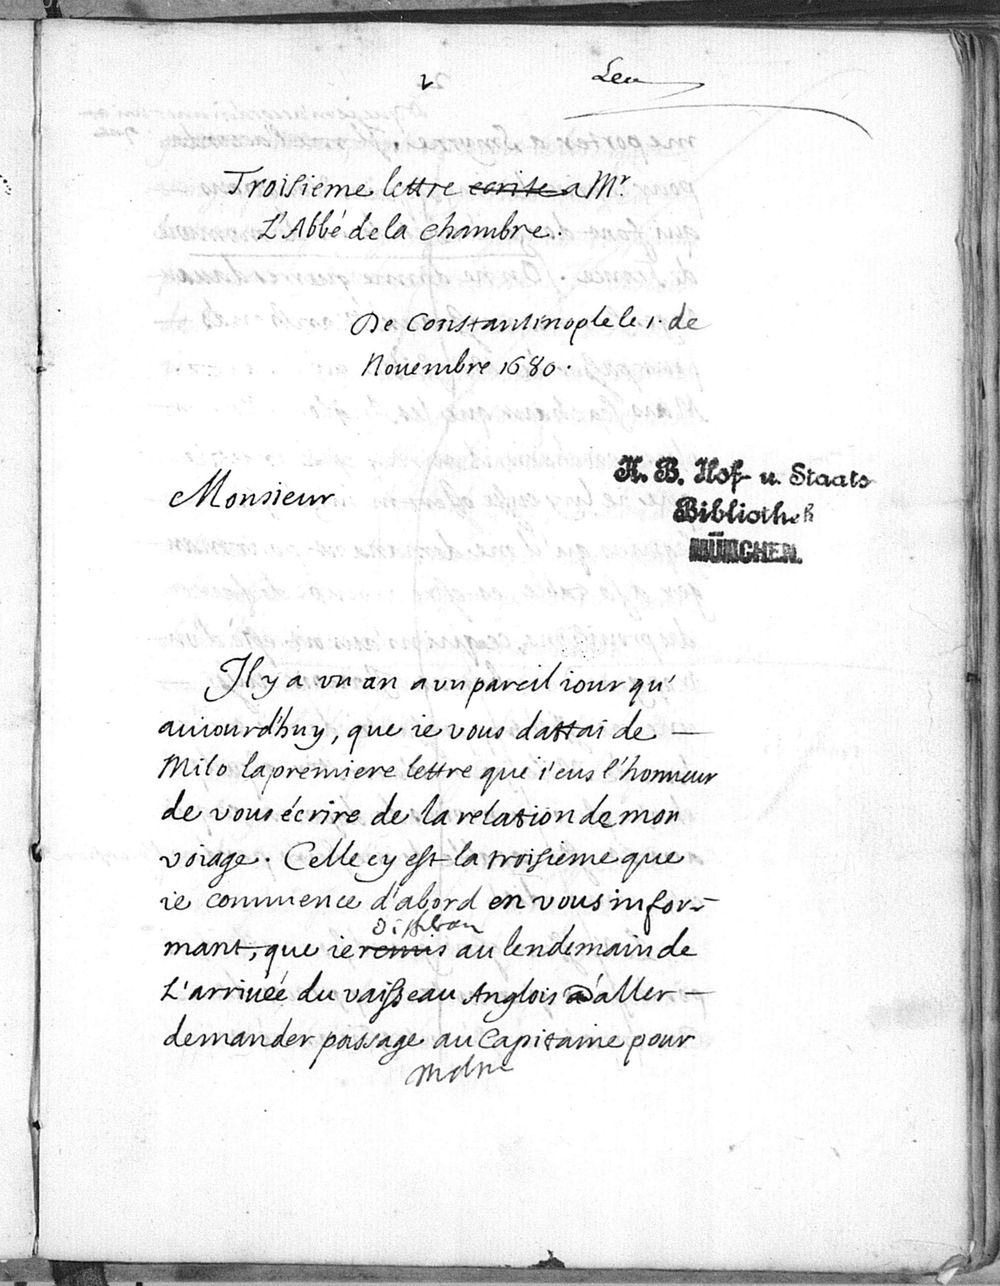 Leu
Troisieme lettre ecrite a Mr
L'Abbé de la chambre.
De Constantinople le 1. de
Nouembre 1680.
Monsieur
K. B. Hof- u. Staats
Bibliothek
MÜNCHEN.
Il y a vn an a vn pareil iour qu'
auiourdhuy, que ie vous dattai de
Milo la premiere lettre que i'eus l'honneur
de vous écrire de la relation de mon
voiage. Celle cy est la troisieme que
ie commence d'abord en vous infor-
mant, que ie remis au lendemain de
L'arriuéé du vaisseau Anglois d'aller
demander passage au Capitaine pour